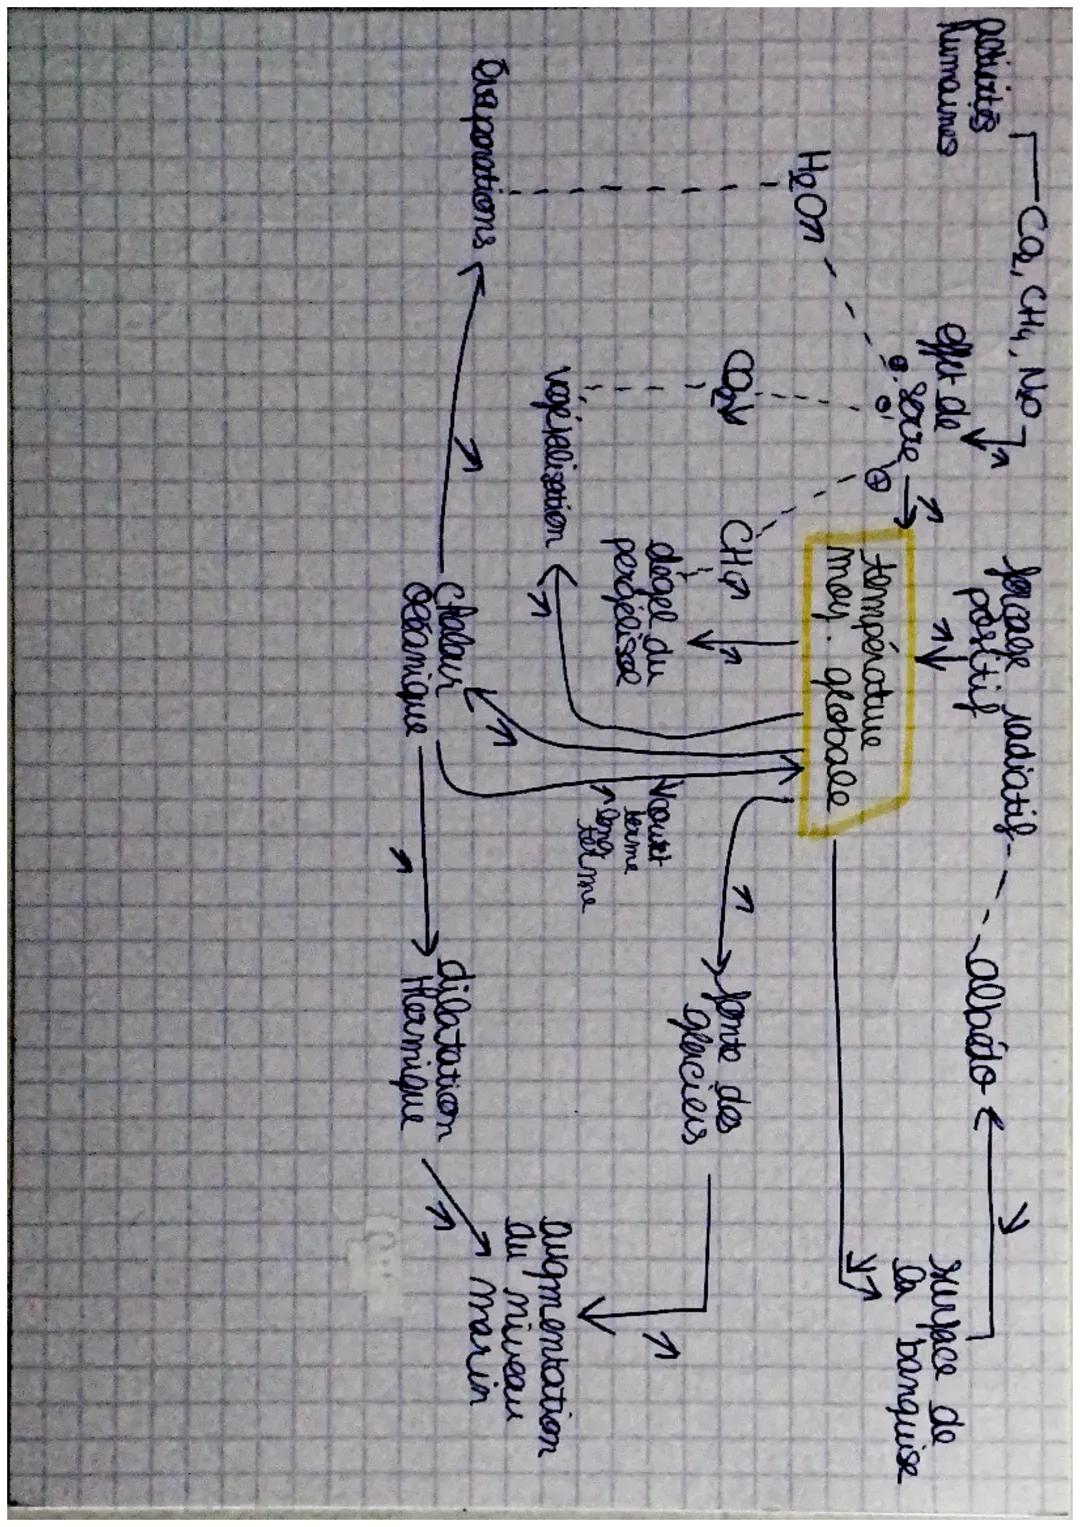 activités
humaines
CO2, CH4, N2O
↗
effet de
serre
↗
forçage radiatif
positif
↗
albédo
↘
surface de
la banquise
↗
H2O↗
⊕
⊖
⊕
température
moy. globale
CO2↘
CH4↗
dégel du
pergélisol
↗
végétalisation
↗
↗
↘ court
terme
↗ long
terme
↗
fonte des
glaciers
↗
évaporations
↗
chaleur
océanique
↗
dilatation
thermique
↗
augmentation
du niveau
marin